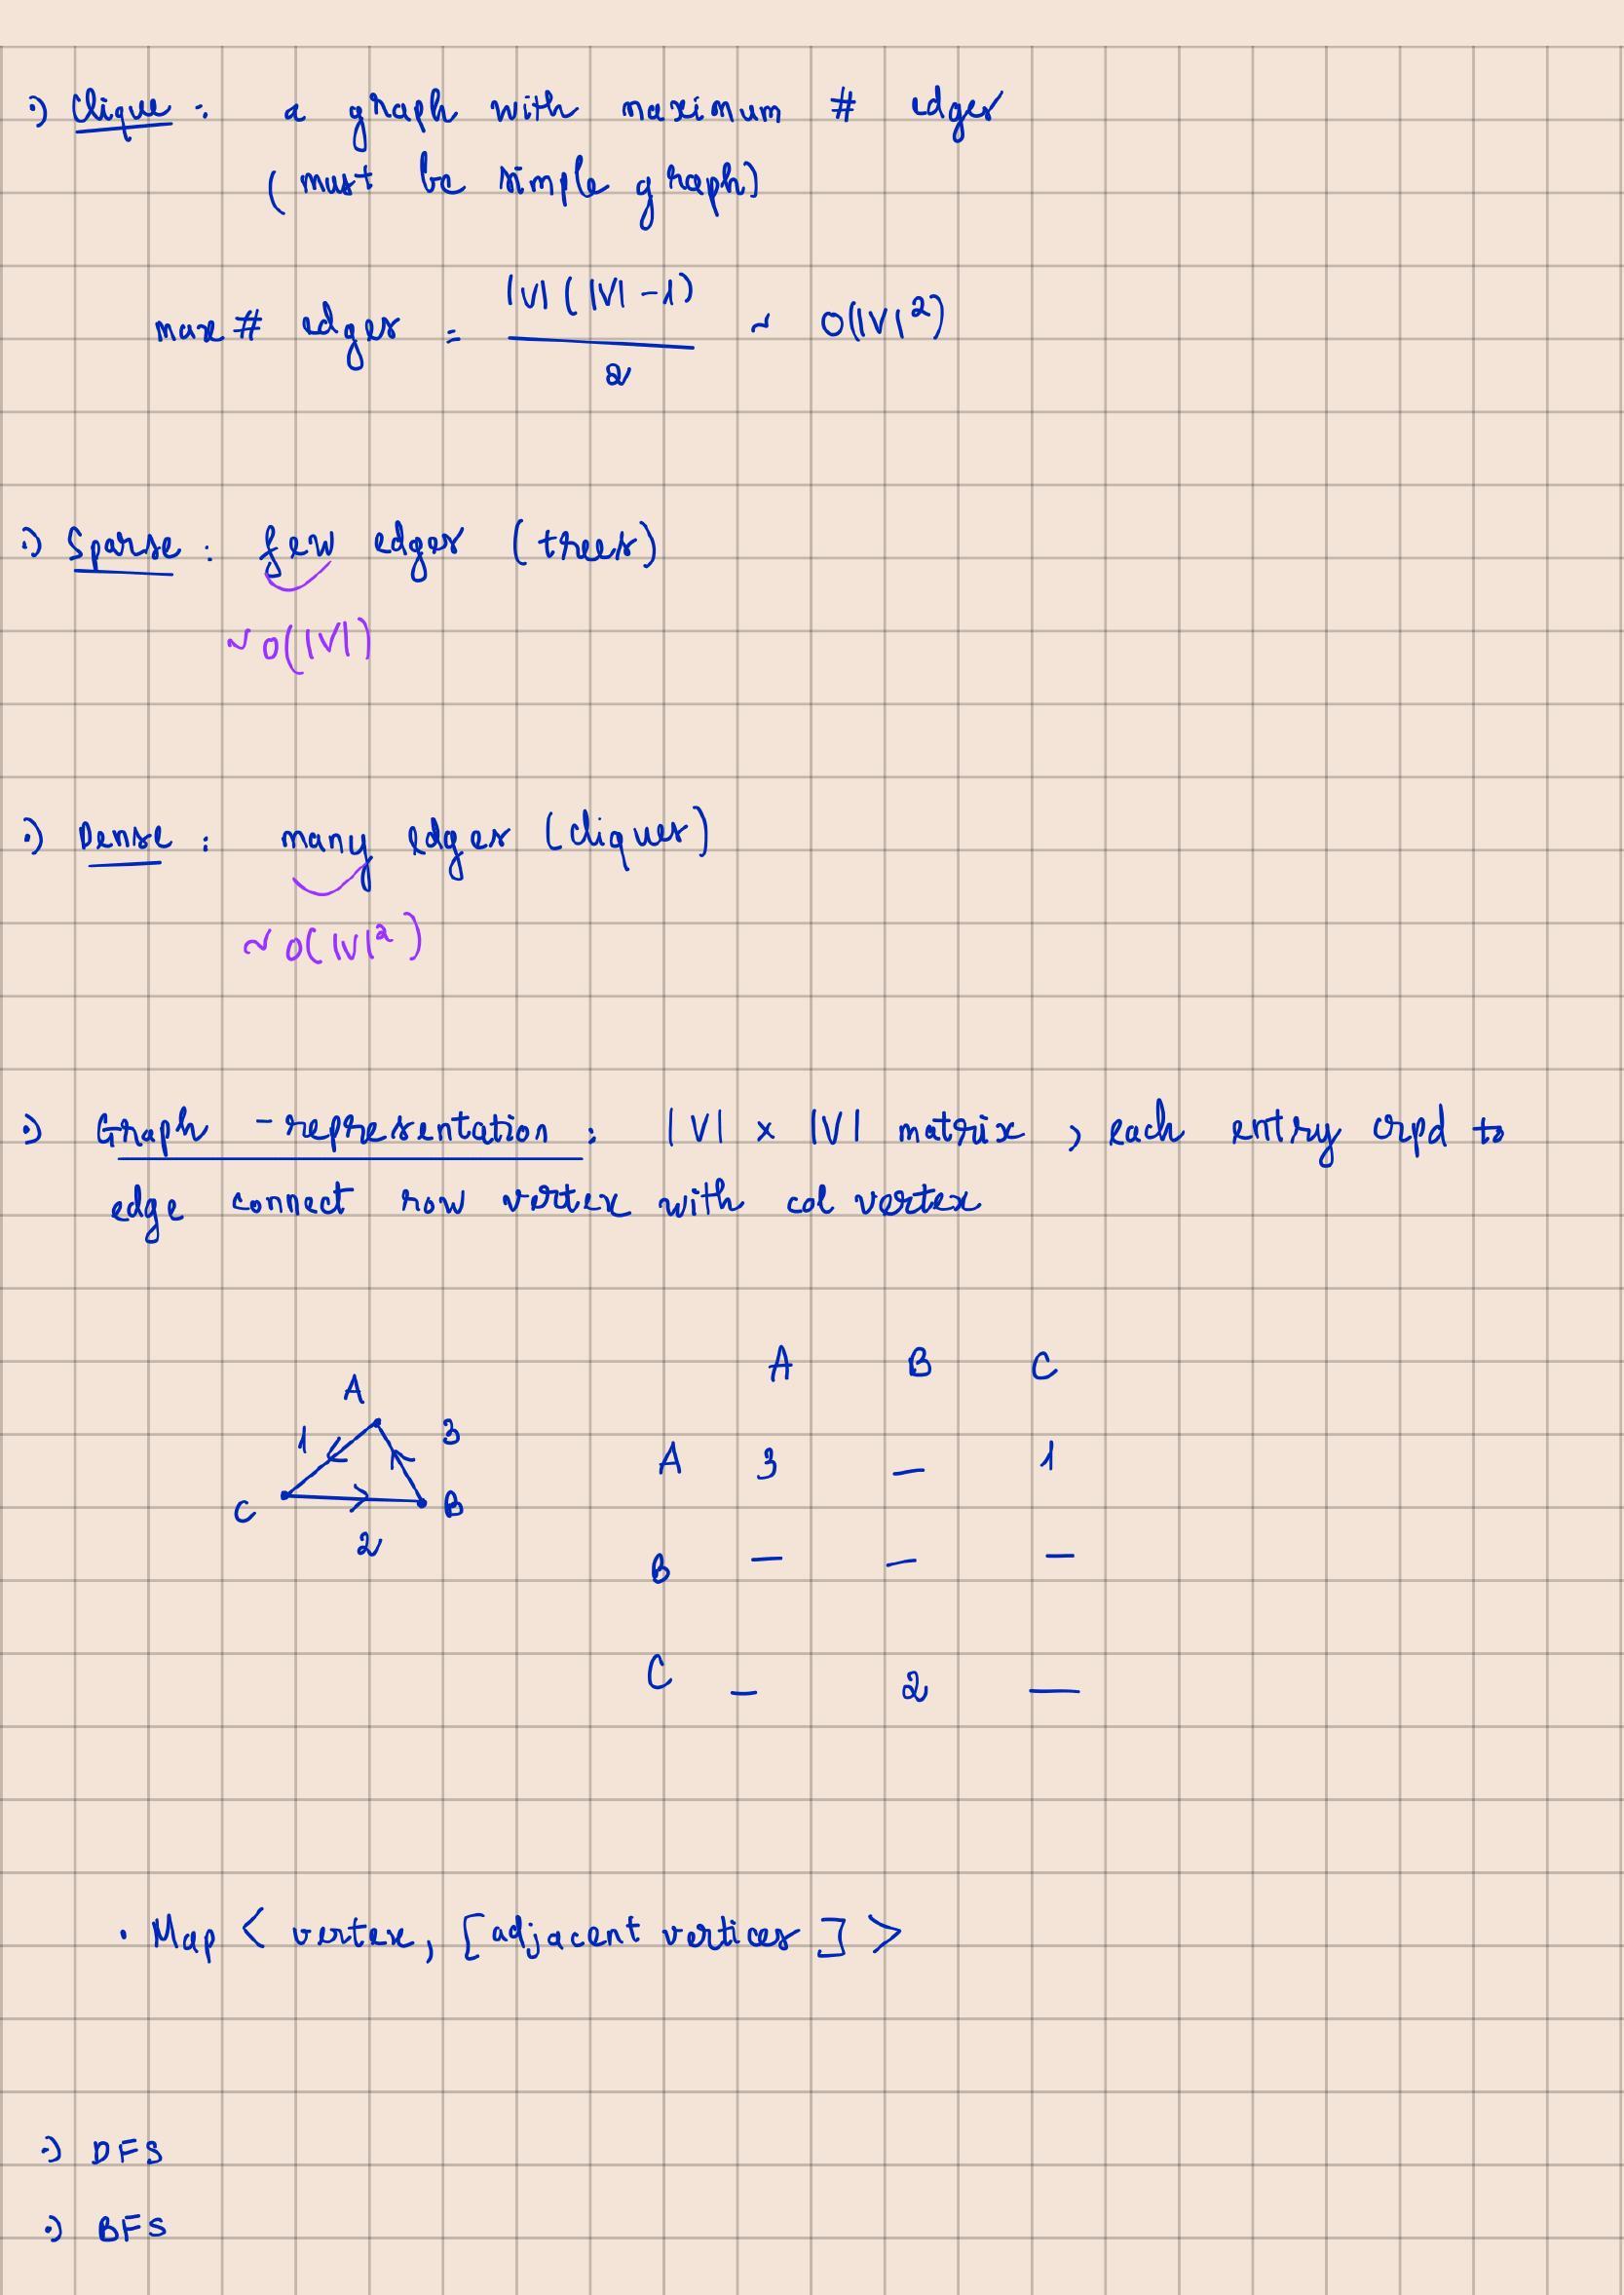 :) Clique : a graph with maximum # edges
(must be simple graph)
max # edges = |V| (|V| - 1) / 2 ~ O(|V|²)
:) Sparse : few edges (trees)
~ O(|V|)
:) Dense : many edges (cliques)
~ O(|V|²)
:) Graph - representation : |V| x |V| matrix , each entry crpd to
edge connect row vertex with col vertex
A B C
A 3 — 1
B — — —
C — 2 —
A
1 3
C B
2
• Map < vertex, [adjacent vertices] >
:) DFS
:) BFS